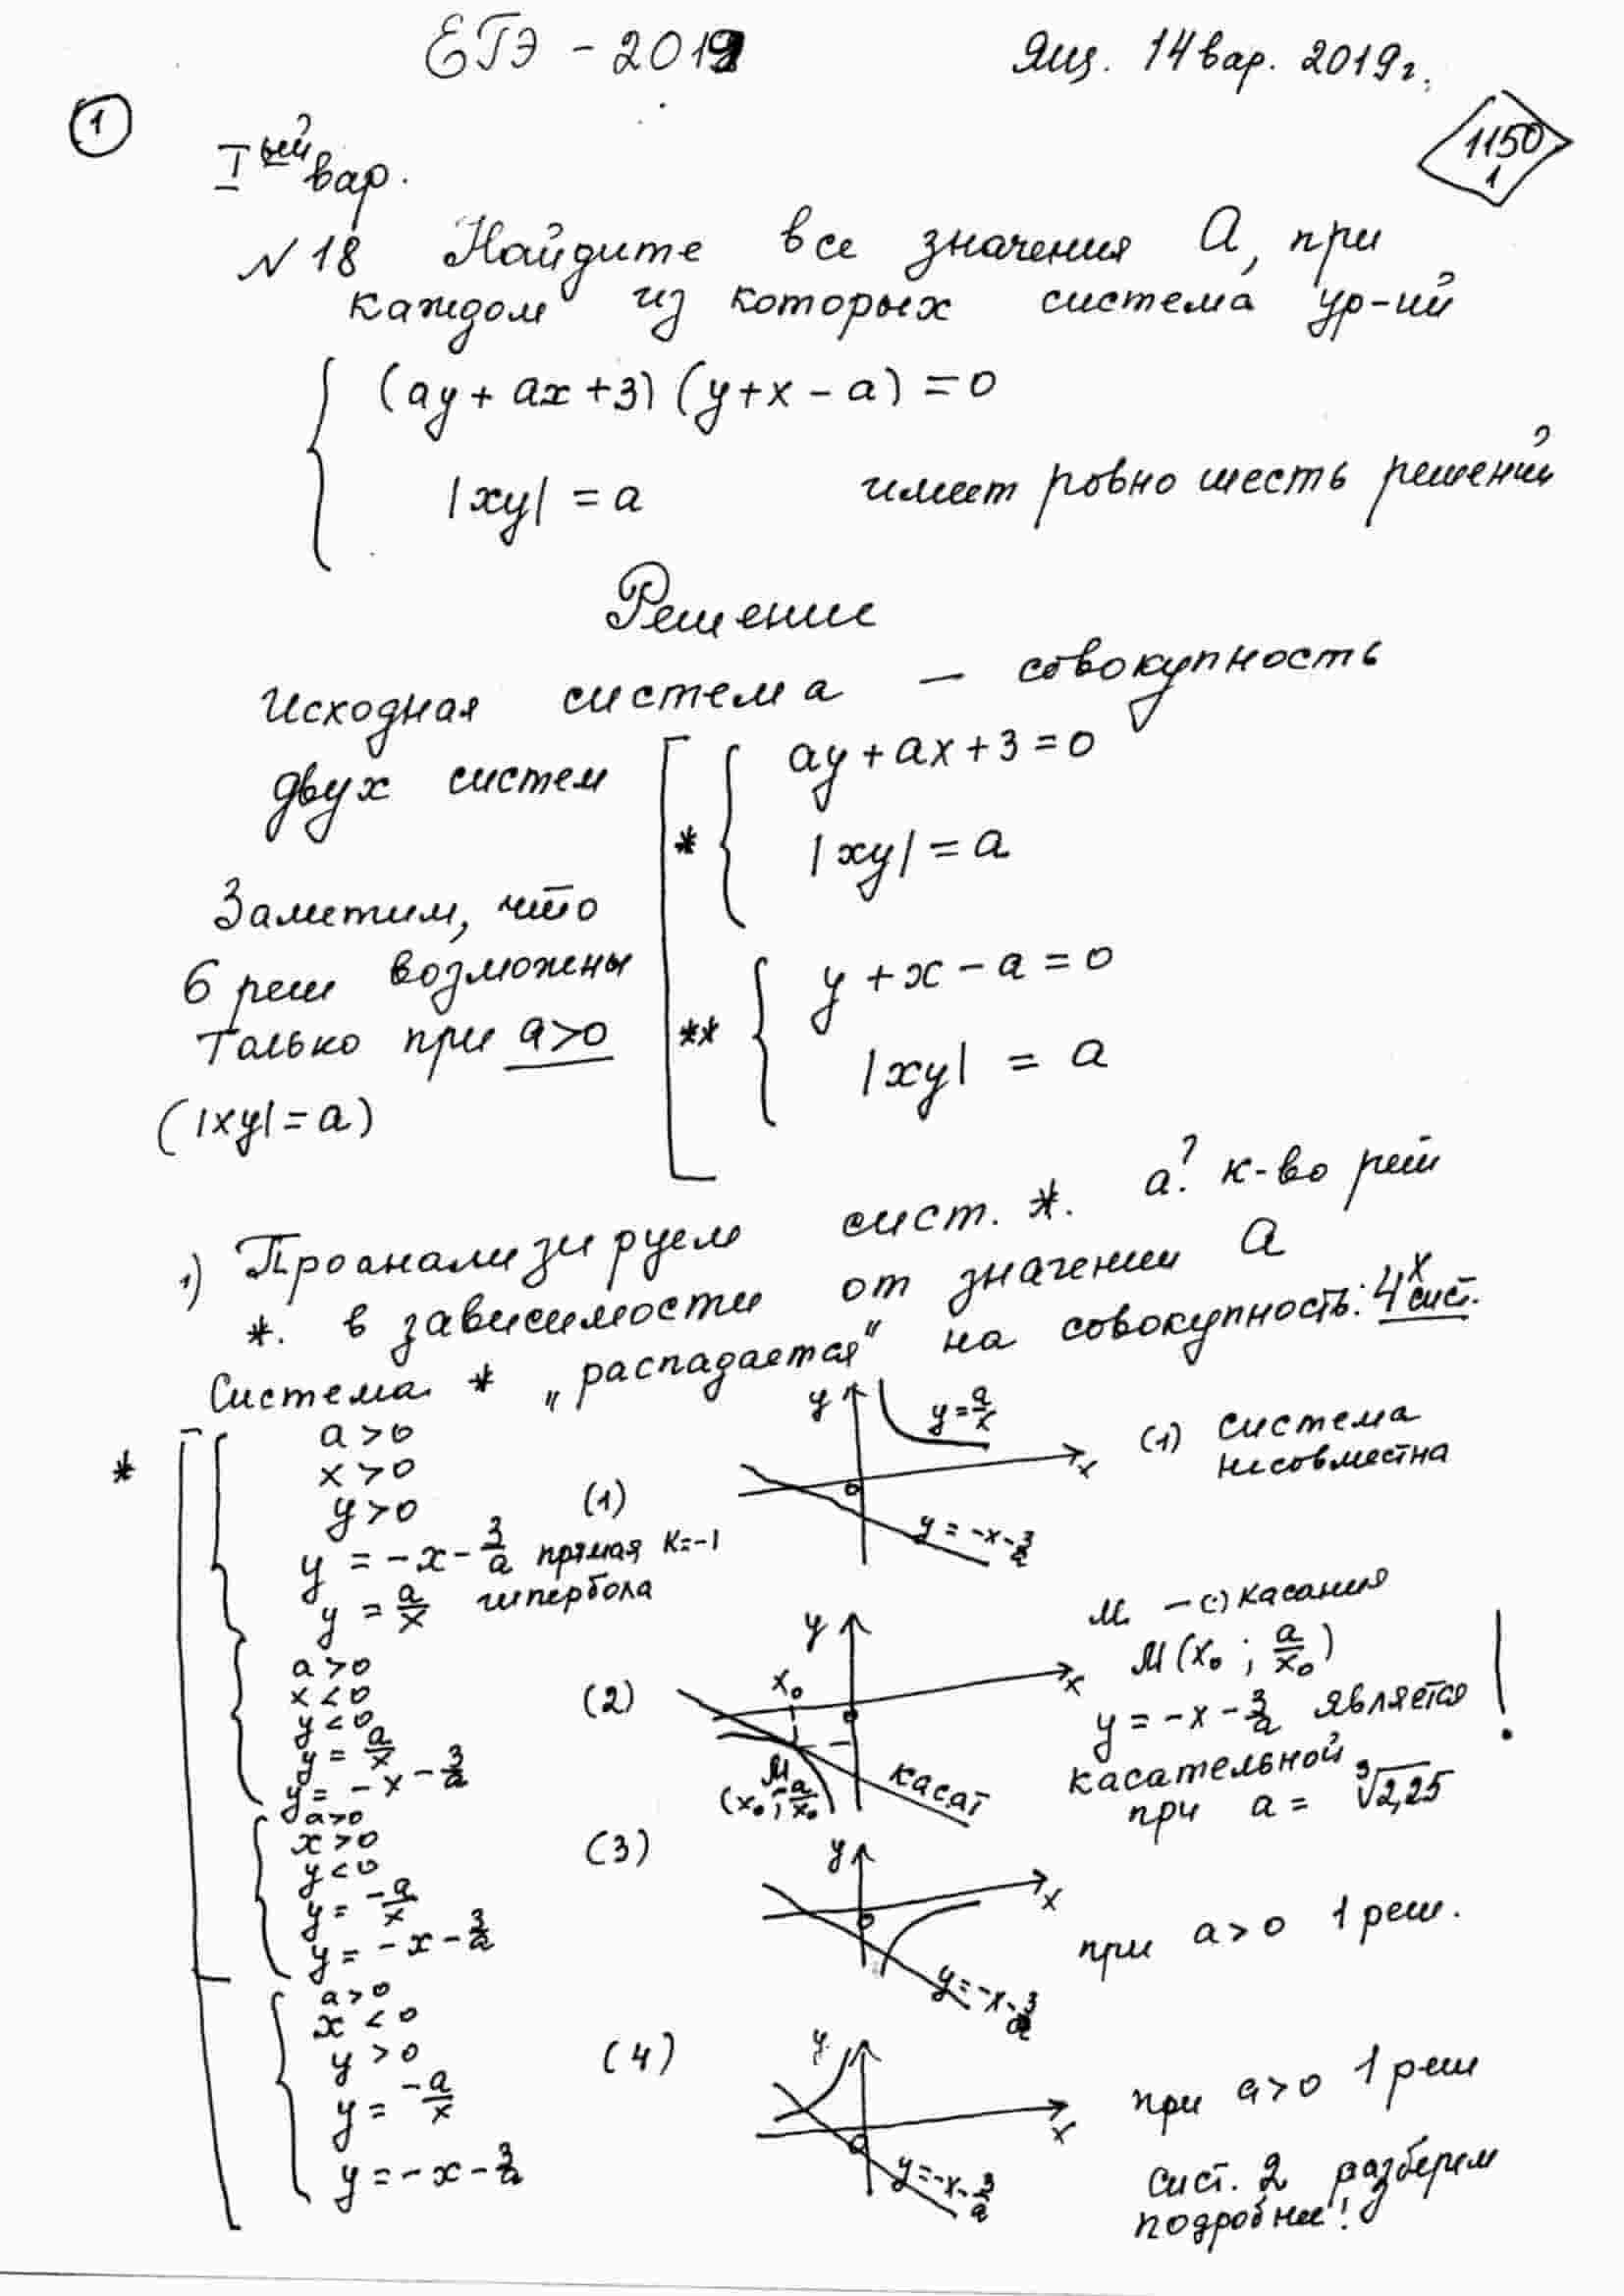 ЕГЭ - 2019
Ящ. 14 вар. 2019 г.
1
1150
1
I ый вар.
№ 18 Найдите все значения а, при
каждом из которых система ур-ий
(ay + ax + 3) (y + x - a) = 0
|xy| = a имеет ровно шесть решений
Решение
Исходная система — совокупность
двух систем
* ay + ax + 3 = 0
|xy| = a
Заметим, что
6 реш возможны
только при a>0
(|xy| = a)
** y + x - a = 0
|xy| = a
1) Проанализируем сист. *. а? к-во реш
*. в зависимости от значении а
Система * „распадается" на совокупность: 4х сист.
*
a > 0
x > 0
y > 0 (1)
y = -x - 3/a прямая к=-1
y = a/x гипербола
y
y = a/x
x
0
y = -x - 3/a
(1) система
несовместна
a > 0
x < 0
y < 0 (2)
y = a/x
y = -x - 3/a
y
x₀
x
0
M
(x₀; a/x₀)
касат
M. – (·) касания
M (x₀ ; a/x₀)
y = -x - 3/a является !
касательной
при a = ³√2,25
a > 0
x > 0 (3)
y < 0
y = -a/x
y = -x - 3/a
y
x
0
y = -x - 3/a
при a > 0 1 реш.
a > 0
x < 0
y > 0 (4)
y = -a/x
y = -x - 3/a
y
x
0
y = -x - 3/a
при a > 0 1 реш
Сист. 2 разберем
подробнее!